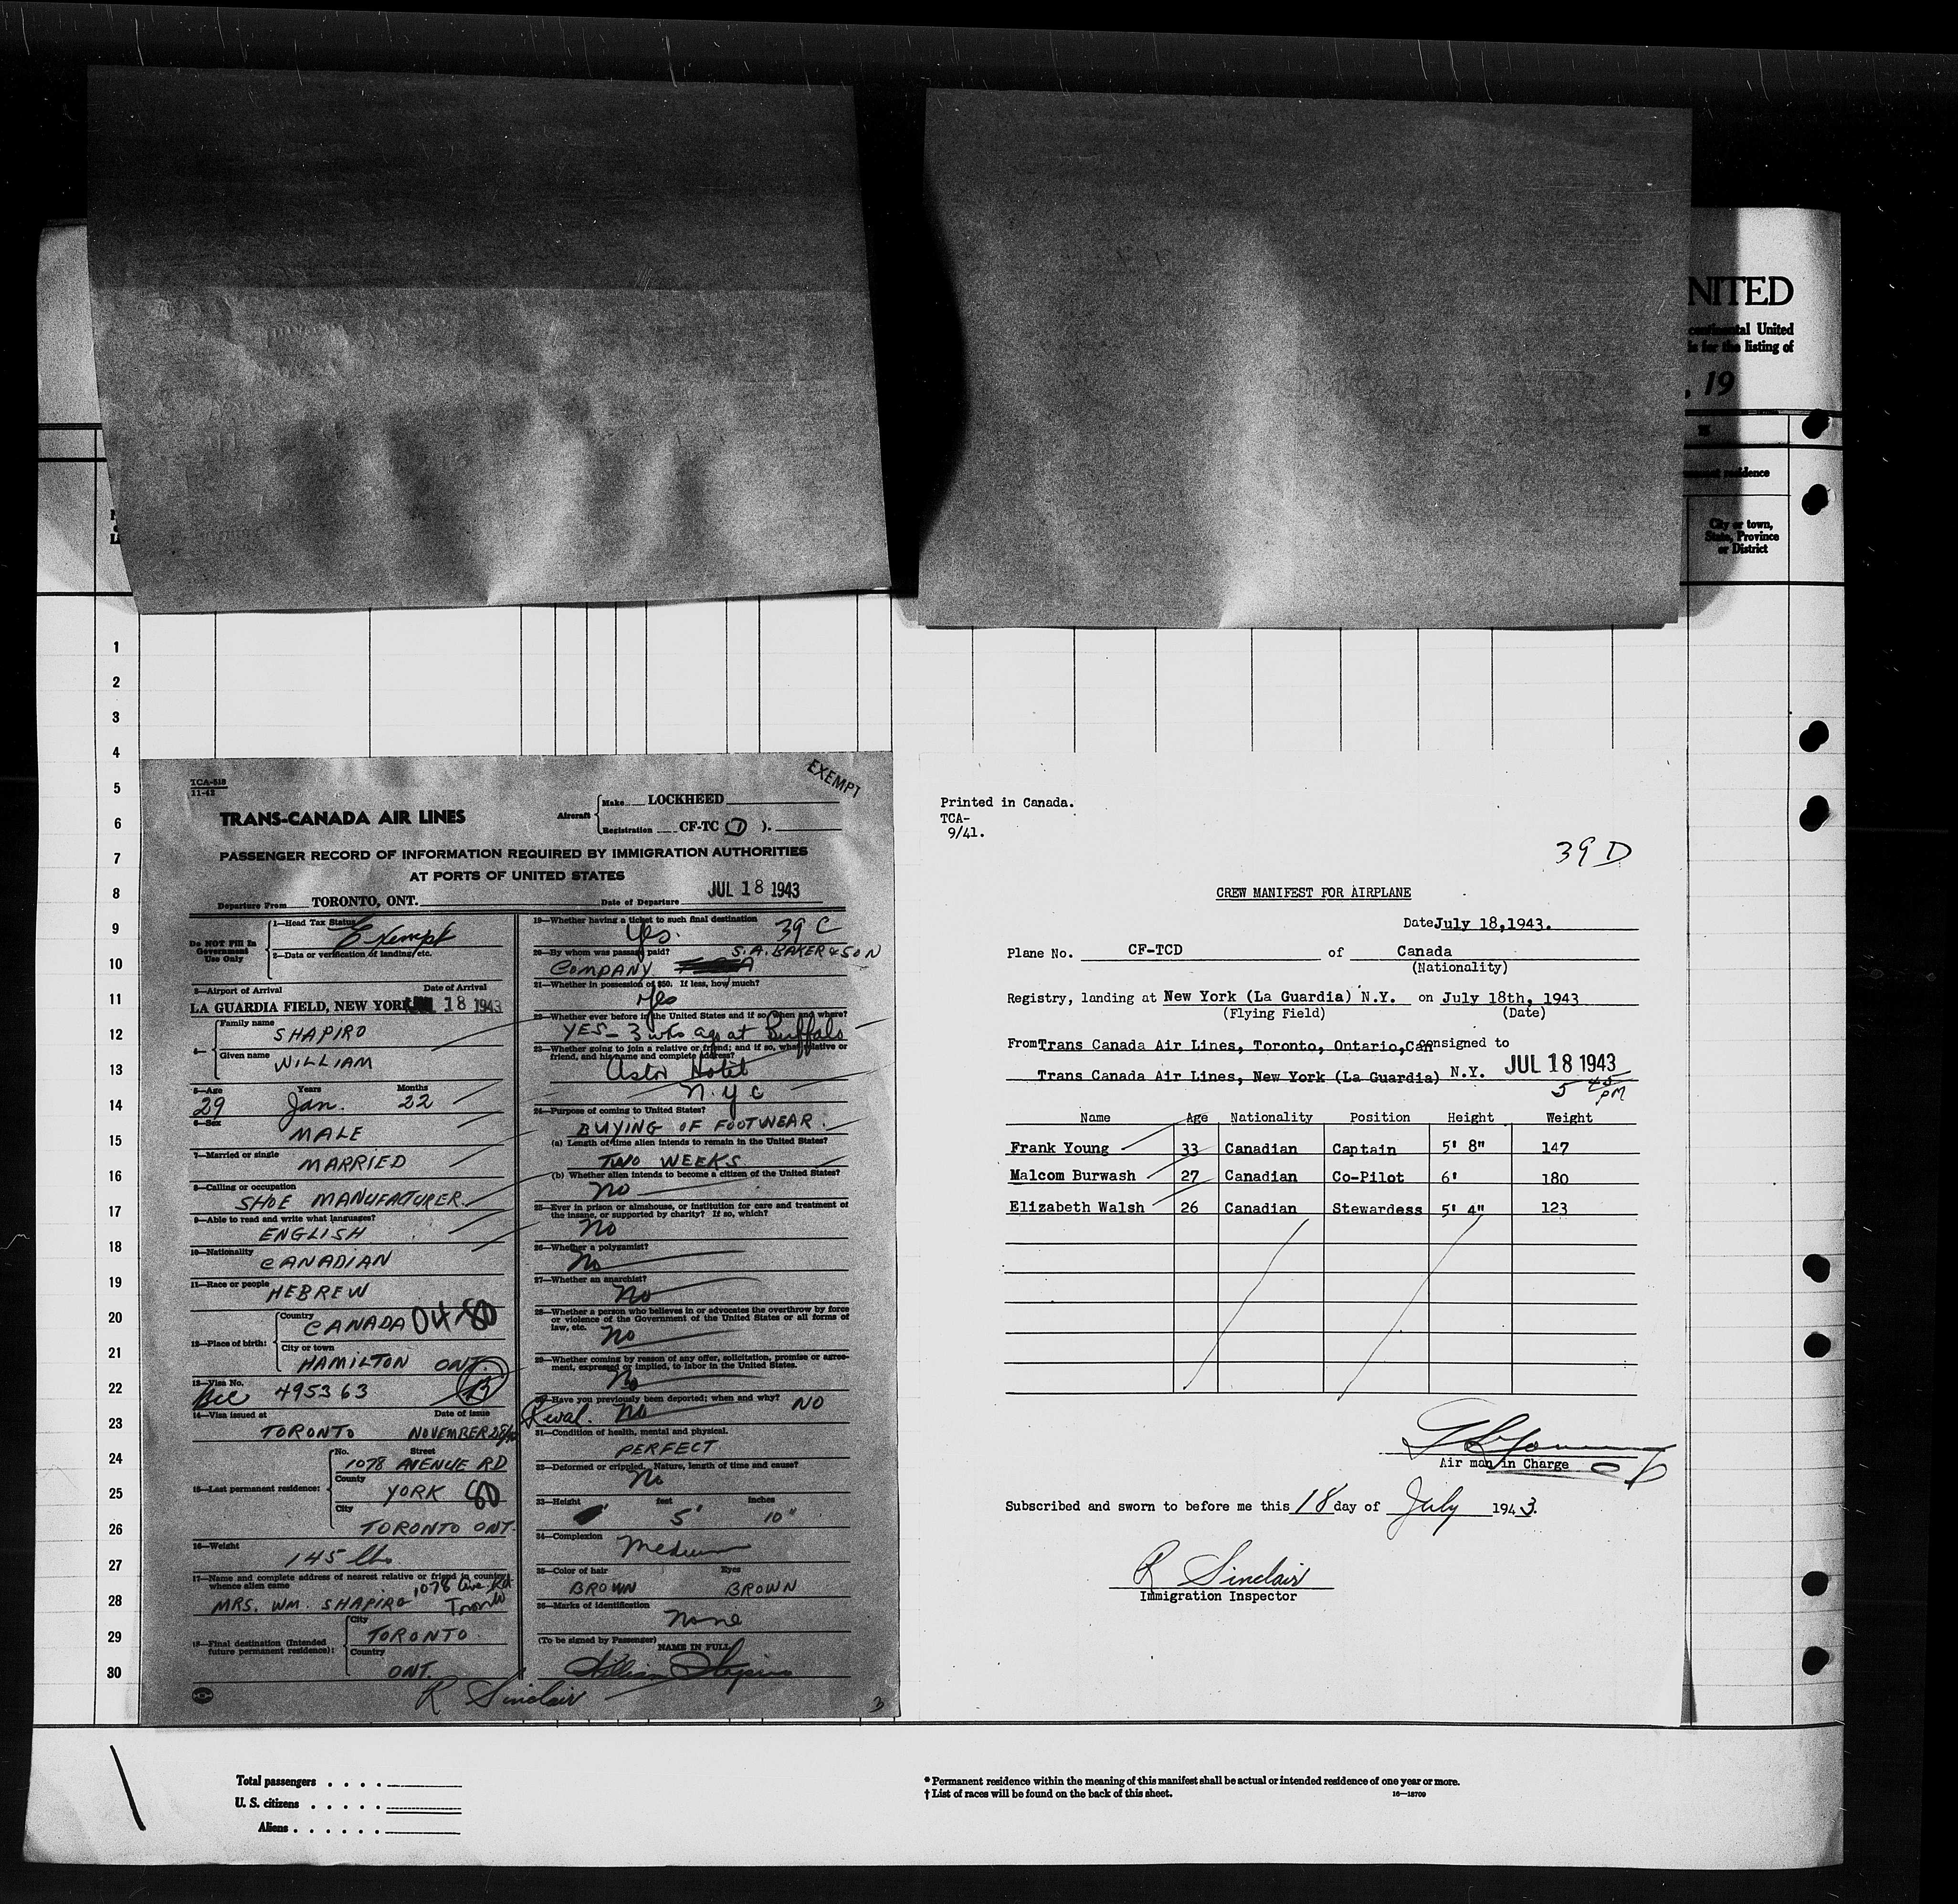 NITED
continental United
is for the listing of
, 19
residence
City or town,
State, Province
or District
1
2
3
4
5
6
7
8
9
10
11
12
13
14
15
16
17
18
19
20
21
22
23
24
25
26
27
28
29
30
TCA-518
11-42
EXEMPT
TRANS-CANADA AIR LINES
Aircraft
Make LOCKHEED
Registration CF-TC (D).
PASSENGER RECORD OF INFORMATION REQUIRED BY IMMIGRATION AUTHORITIES
AT PORTS OF UNITED STATES
Departure From TORONTO, ONT. Date of Departure JUL 18 1943
Do NOT Fill In
Government
Use Only
1—Head Tax Status
Exempt
2—Data or verification of landing, etc.
3—Airport of Arrival Date of Arrival
LA GUARDIA FIELD, NEW YORK JUL 18 1943
4—
Family name
SHAPIRO
Given name
WILLIAM
5—Age Years Months
29 Jan. 22
6—Sex
MALE
7—Married or single
MARRIED
8—Calling or occupation
SHOE MANUFACTURER
9—Able to read and write what languages?
ENGLISH
10—Nationality
CANADIAN
11—Race or people
HEBREW
12—Place of birth:
Country
CANADA 04-80
City or town
HAMILTON ONT.
13—Visa No.
495363
14—Visa issued at Date of issue
TORONTO NOVEMBER
15—Last permanent residence:
No. Street
1078 AVENUE RD
County
YORK 80
City
TORONTO ONT.
16—Weight
145 lbs
17—Name and complete address of nearest relative or friend in country
whence alien came
1078 Ave. Rd
MRS. WM. SHAPIRO Toronto
18—Final destination (Intended
future permanent residence):
City
TORONTO
Country
ONT.
R Sinclair
19—Whether having a ticket to such final destination
Yes. 39 C
20—By whom was passage paid? S.A. BAKER & SON
COMPANY
21—Whether in possession of $50. If less, how much?
Yes
22—Whether ever before in the United States and if so, when and where?
YES - 3 wks ago at Buffalo
23—Whether going to join a relative or friend; and if so, what relative or
friend, and his name and complete address?
Astor Hotel
N.Y.C
24—Purpose of coming to United States?
BUYING OF FOOTWEAR.
(a) Length of time alien intends to remain in the United States?
TWO WEEKS
(b) Whether alien intends to become a citizen of the United States?
no
25—Ever in prison or almshouse, or institution for care and treatment of
the insane, or supported by charity? If so, which?
No
26—Whether a polygamist?
No
27—Whether an anarchist?
No
28—Whether a person who believes in or advocates the overthrow by force
or violence of the Government of the United States or all forms of
law, etc.
No
29—Whether coming by reason of any offer, solicitation, promise or agree-
ment, expressed or implied, to labor in the United States.
No
30—Have you previously been deported; when and why? NO
No
31—Condition of health, mental and physical.
PERFECT
32—Deformed or crippled. Nature, length of time and cause?
No
33—Height feet inches
5' 10"
34—Complexion
Medium
35—Color of hair Eyes
BROWN BROWN
36—Marks of identification
None
(To be signed by Passenger) NAME IN FULL
William Shapiro
3
Printed in Canada.
TCA-
9/41.
39 D
CREW MANIFEST FOR AIRPLANE
Date July 18,1943.
Plane No. CF-TCD of Canada
(Nationality)
Registry, landing at New York (La Guardia) N.Y. on July 18th, 1943
(Flying Field) (Date)
From Trans Canada Air Lines, Toronto, Ontario,Can consigned to
Trans Canada Air Lines, New York (La Guardia) N.Y. JUL 18 1943
5 45 PM
Name Age Nationality Position Height Weight
Frank Young 33 Canadian Captain 5' 8" 147
Malcom Burwash 27 Canadian Co-Pilot 6' 180
Elizabeth Walsh 26 Canadian Stewardess 5' 4" 123
Air man in Charge
Subscribed and sworn to before me this 18 day of July 1943.
R Sinclair
Immigration Inspector
Total passengers . . . .
U. S. citizens . . . . .
Aliens . . . . . .
* Permanent residence within the meaning of this manifest shall be actual or intended residence of one year or more.
† List of races will be found on the back of this sheet. 16—18709